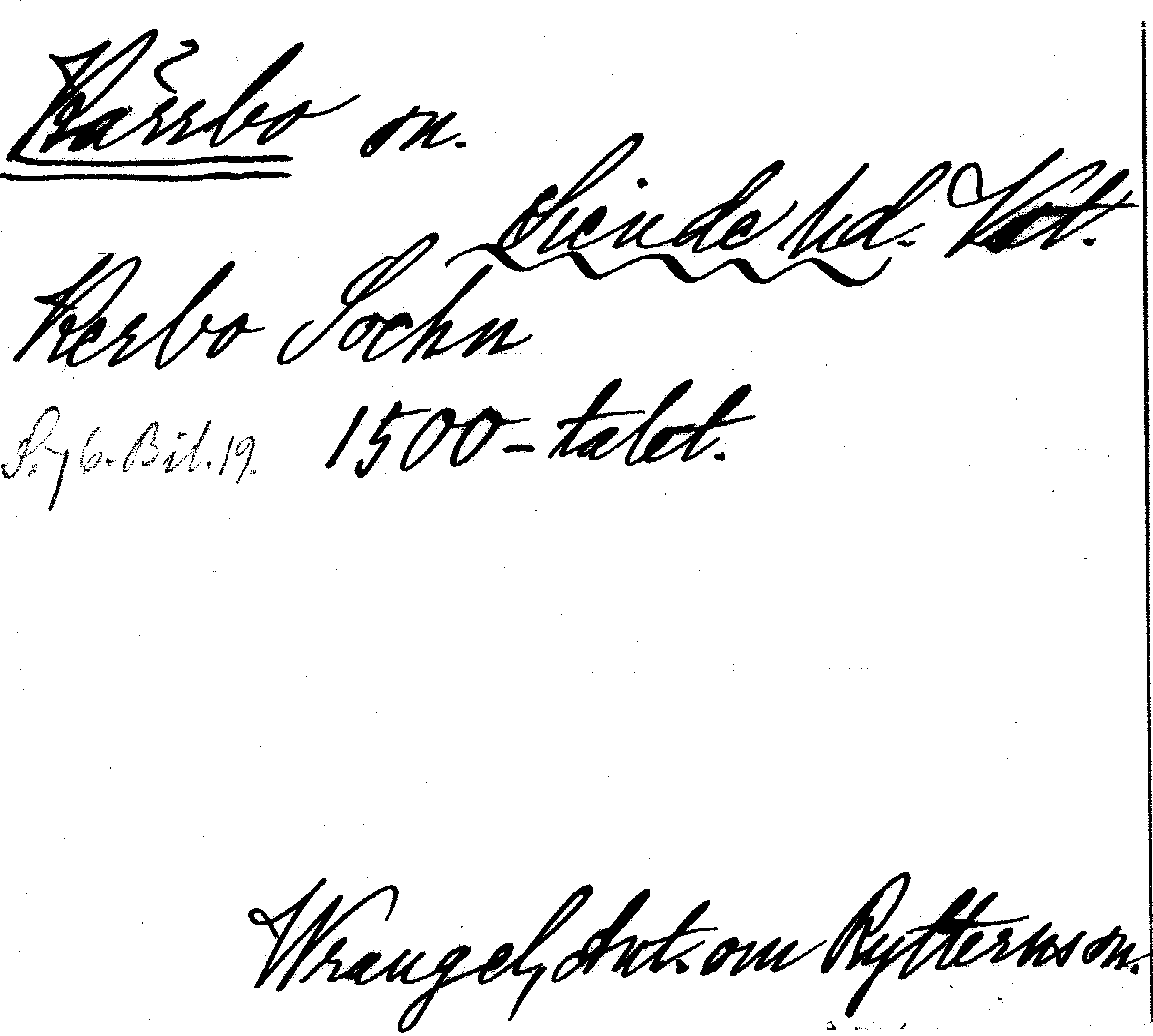 Kärrbo sn.
Siende hd. Vstl.
Kerbo Sochn
S. 76. Bil. 19. 1500-talet.
Wrangel, Ant. om Rytterns sn.